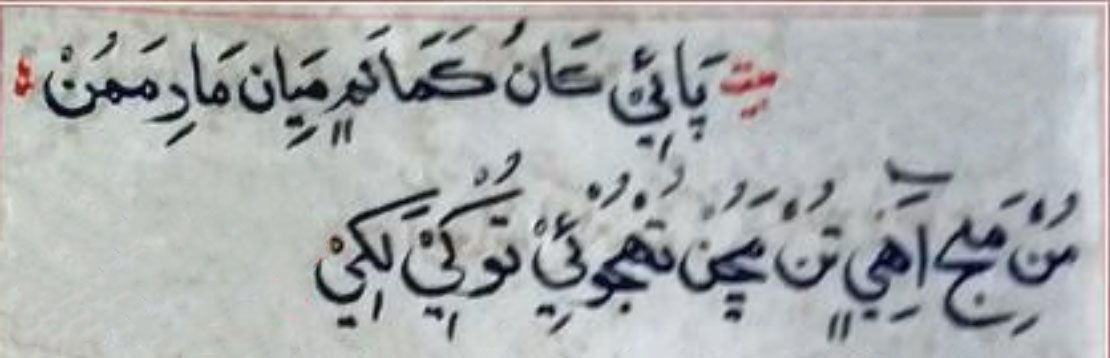 بيت پَائِيْ كَانُ كَمَانَمٍ مِيَان مَارِ مَمُنْ
مُنِ مَجِ آهِيٍ تُنْ مَڇُنْ تُهْجُوْئِيْ تَوُكِيْ لَكِيْ